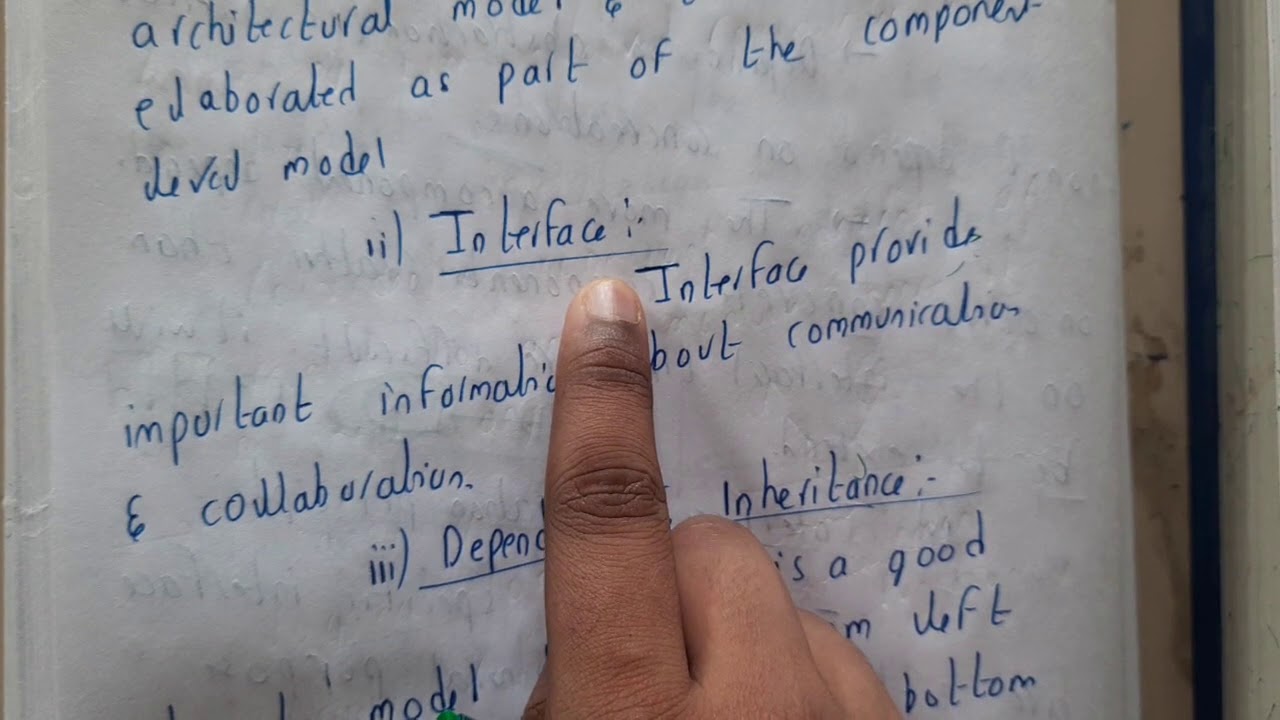 architectural model &
elaborated as part of the component
level model
ii) Interface :-
Interface provide
important about communication
& collaboration.
iii) Inheritance :-
is a good
left
model bottom